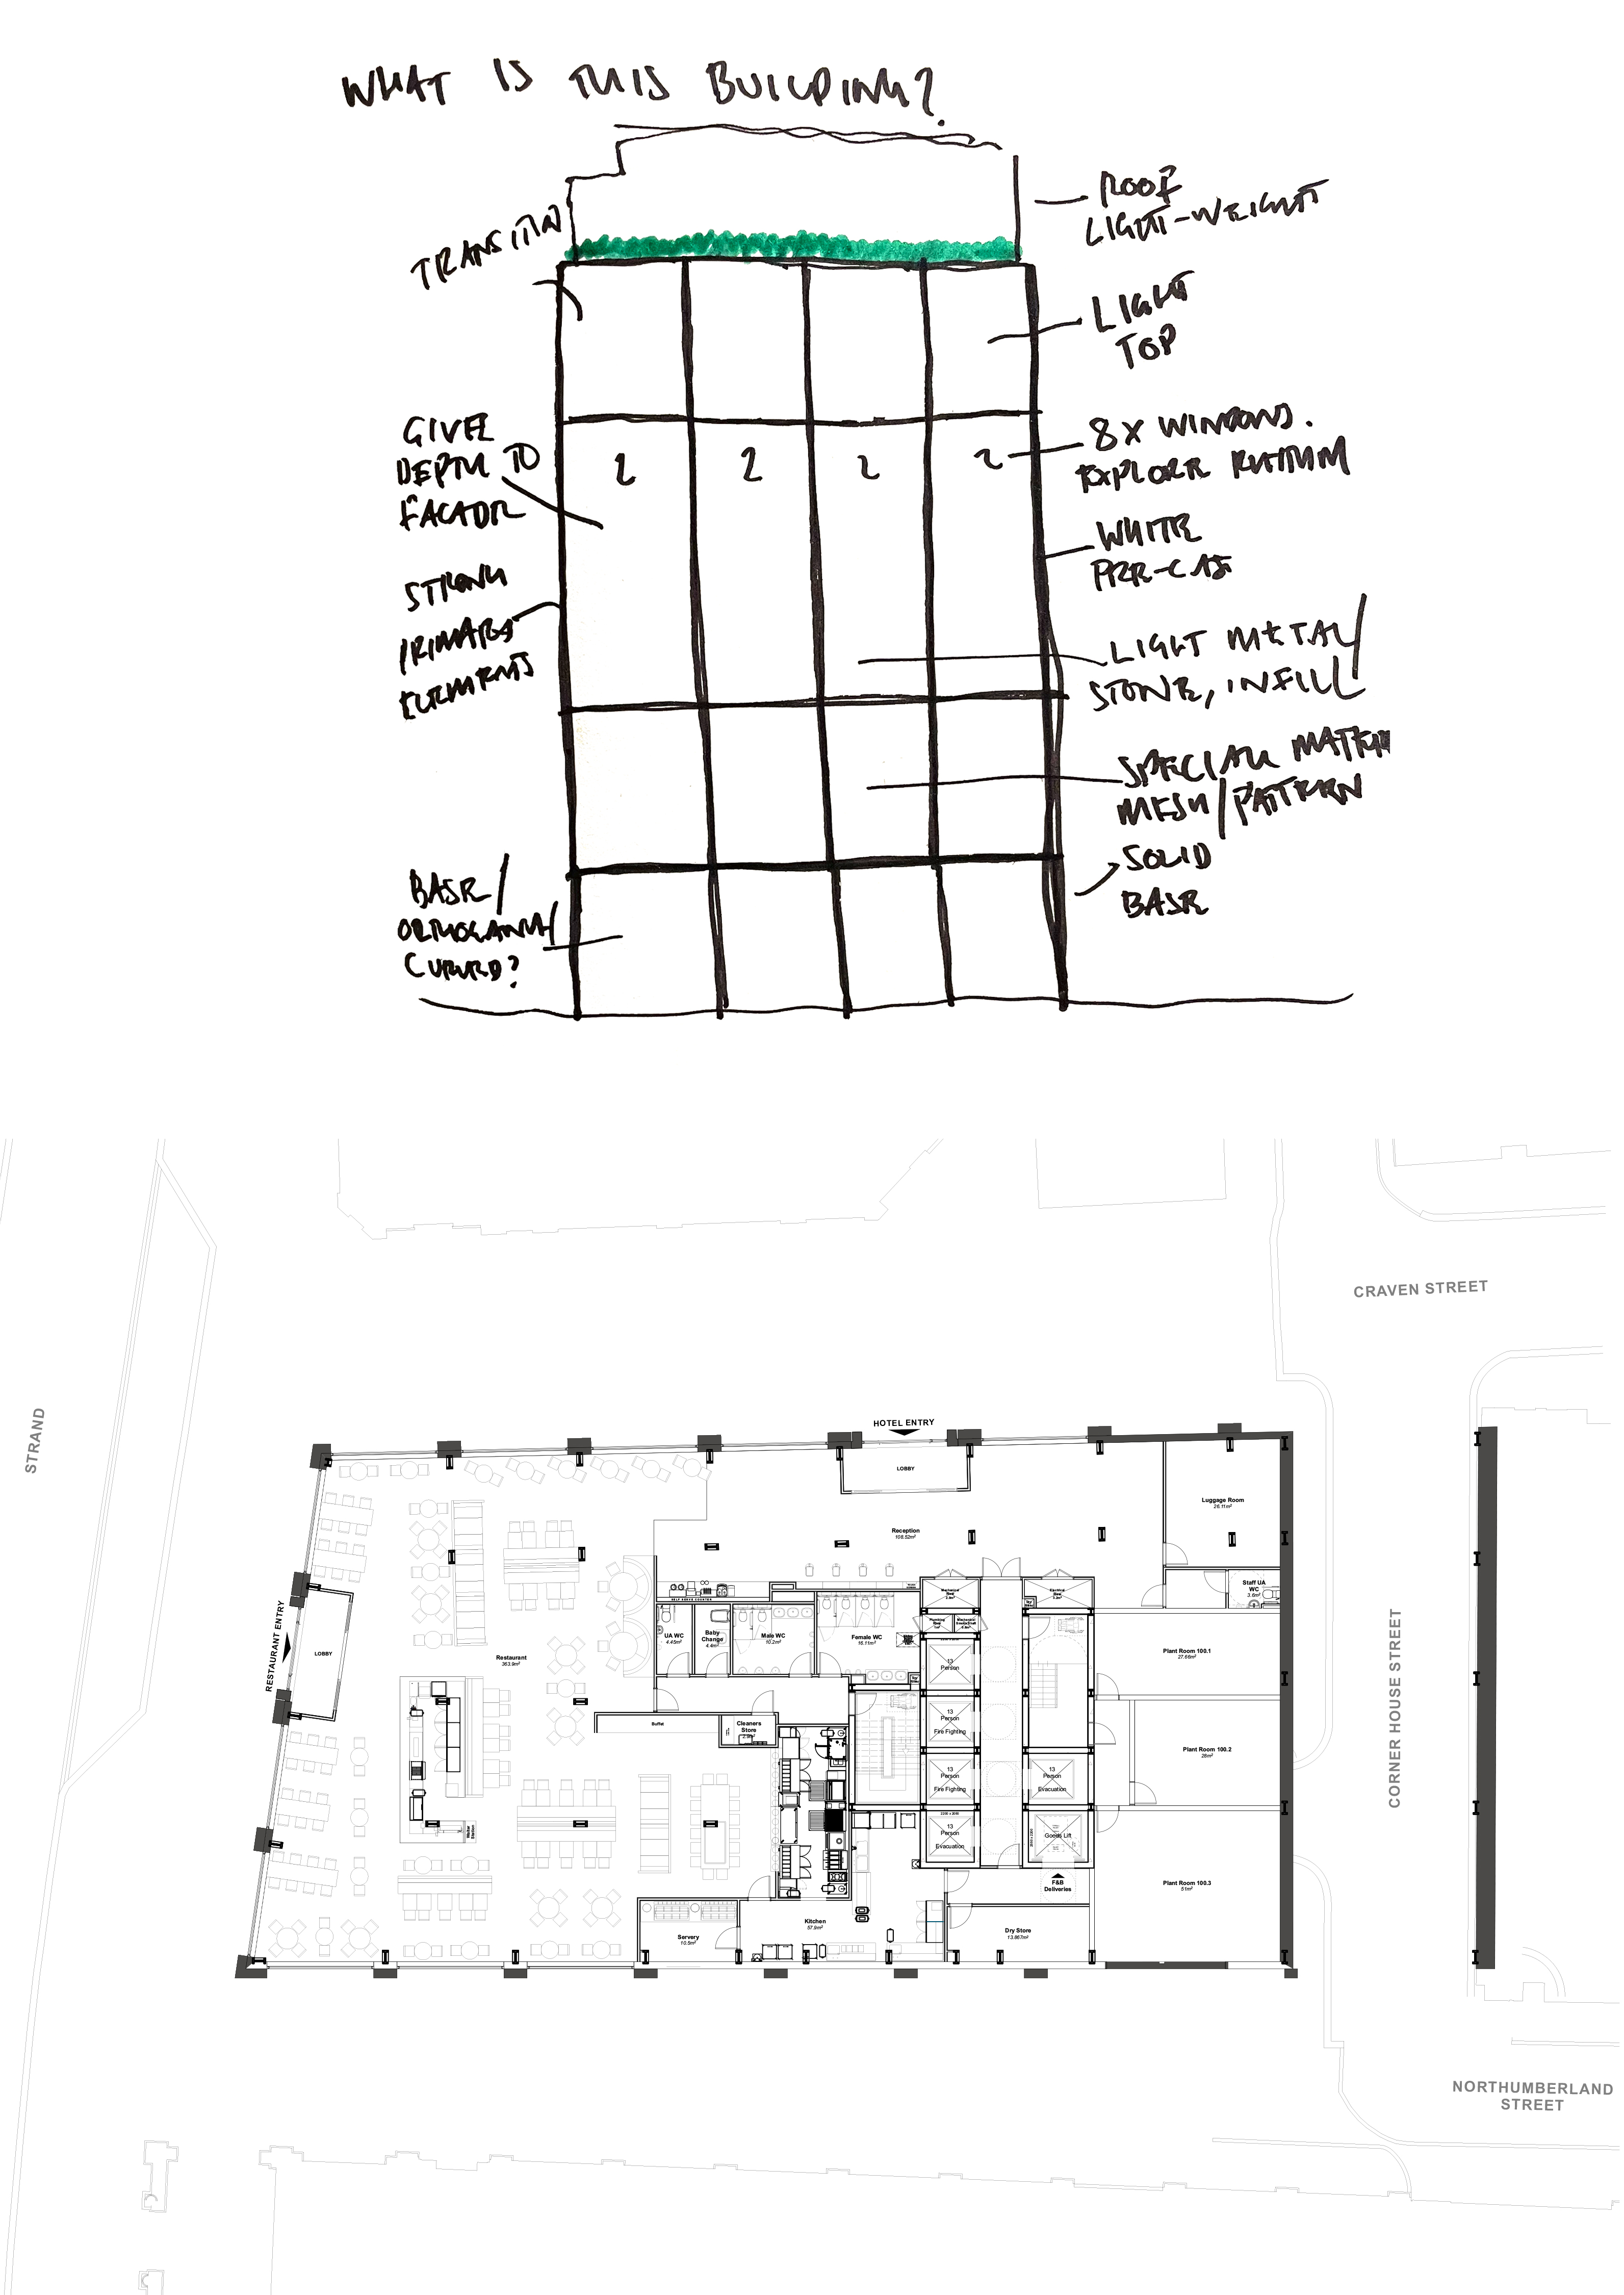 WHAT IS THIS BUILDING?
TRANSITION
ROOF
LIGHT-WEIGHT
LIGHT
TOP
GIVE
DEPTH TO
FACADE
2 2 2 2
8X WINDOWS.
EXPLORE RHYTHM
STRONG
PRIMARY
ELEMENTS
WHITE
PRE-CAST
LIGHT METAL/
STONE, INFILL
SPECIAL
MESH/PATTERN
SOLID
BASE
BASE/
ORTHOGANAL/
CURVED?
CRAVEN STREET
STRAND
HOTEL ENTRY
LOBBY
Luggage Room
26.11m²
Reception
108.52m²
Staff UA
WC
3.6m²
RESTAURANT ENTRY
LOBBY
Restaurant
363.9m²
SELF SERVE COUNTER
UA WC
4.45m²
Baby
Change
4.4m²
Male WC
10.2m²
Female WC
16.11m²
Plant Room 100.1
27.66m²
13
Person
13
Person
Fire Fighting
13
Person
Fire Fighting
13
Person
Evacuation
13
Person
Evacuation
Goods Lift
Buffet
Cleaners
Store
Plant Room 100.2
28m²
CORNER HOUSE STREET
F&B
Deliveries
Plant Room 100.3
51m²
Kitchen
57.9m²
Servery
10.5m²
Dry Store
13.867m²
NORTHUMBERLAND
STREET